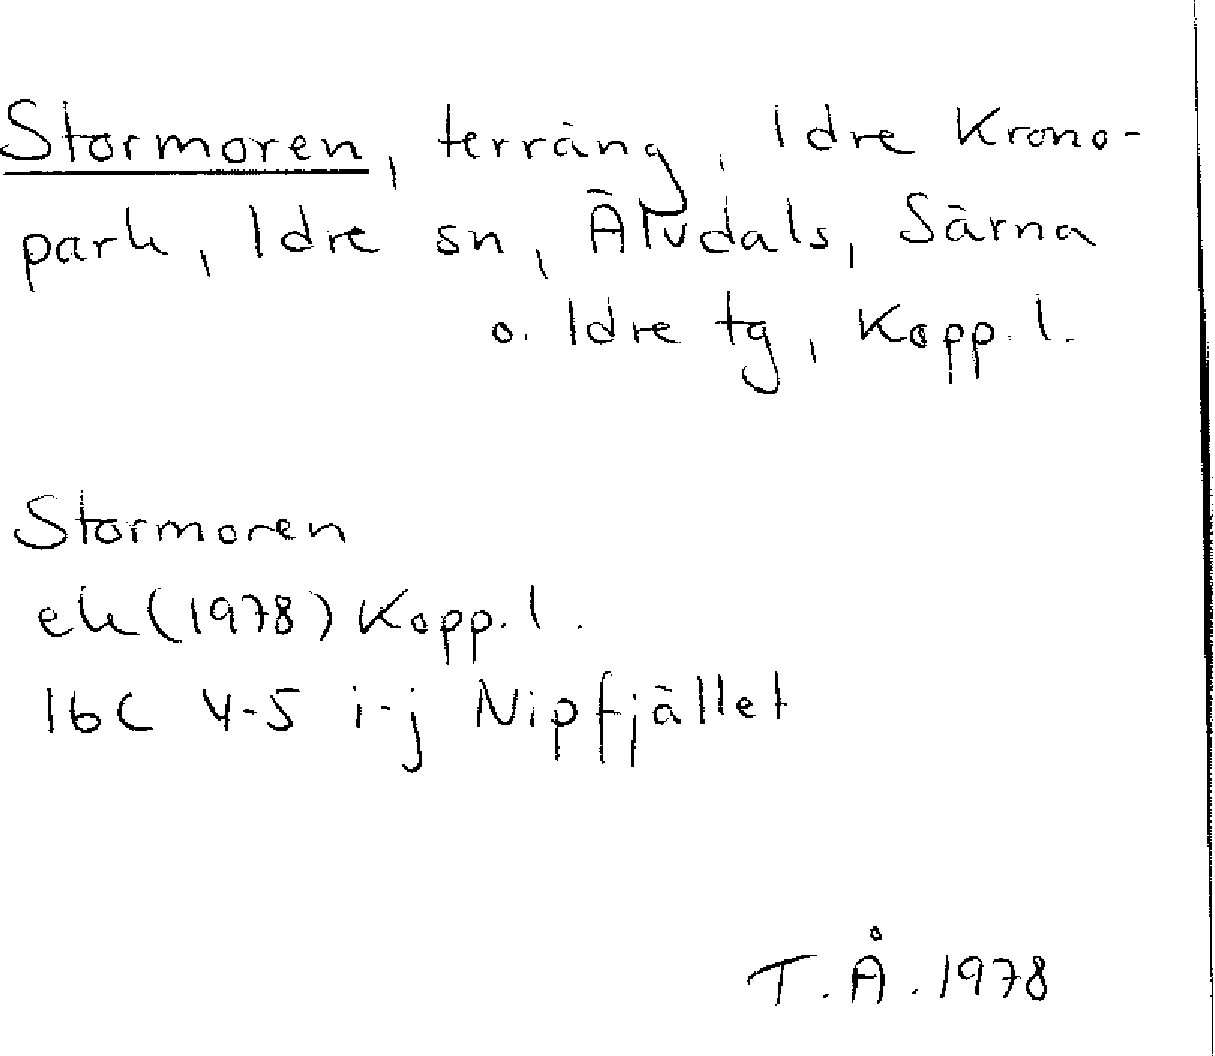 Stormoren, terräng, Idre Krono-
park, Idre sn, Älvdals, Särna
o. Idre tg, Kopp. l.
Stormoren
ek (1978) Kopp. l.
16C 4-5 i-j Nipfjället
T. Å. 1978